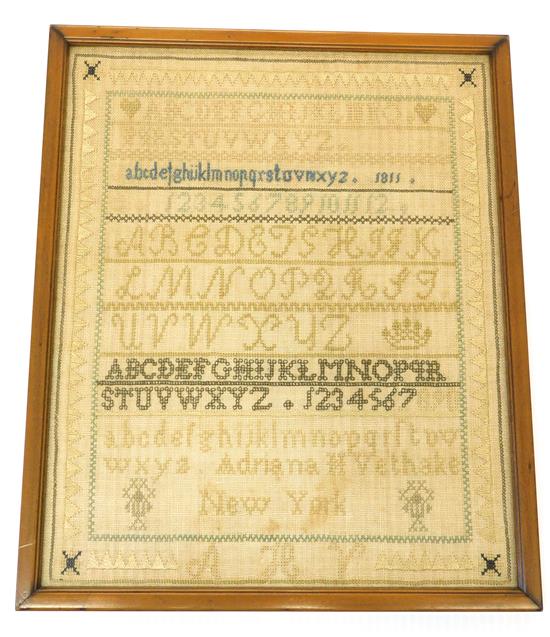 ABCDEFGHIJ
STUVWXYZ
abcdefghijklmnopqrstuvwxyz. 1811.
123456789101112.
ABCDEFGHIJK
LMNOPQRST
UVWXYZ
ABCDEFGHIJKLMNOPQR
STUVWXYZ. 1234567
abcdefghijklmnopqrſtuv
wxyz Adriana H Vethake
New York
A H V